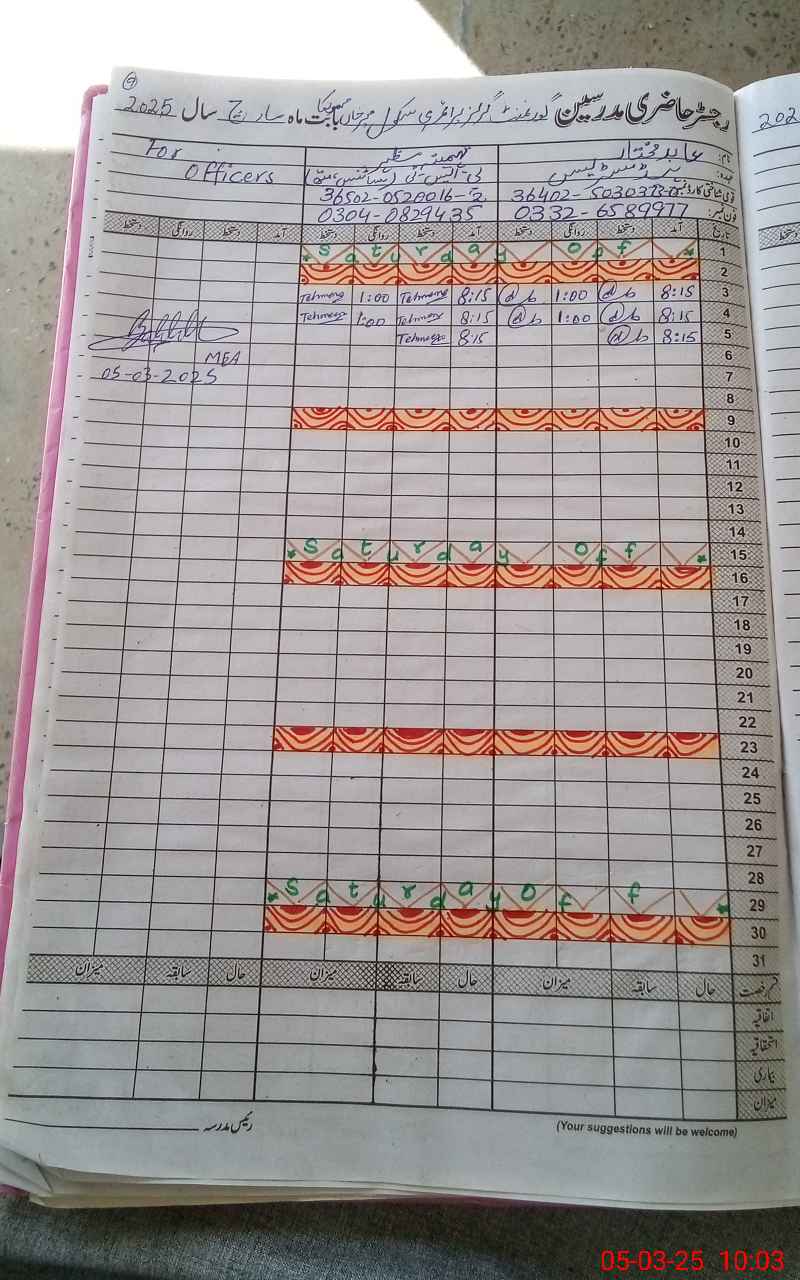 9
رجسٹر حاضری مدرسین گورنمنٹ گرلز پرائمری سکول بابت ماہ مارچ سال 2025
202
نام: عابدہ مختار تہمینہ For
عہدہ: Officers
قومی شناختی کارڈ نمبر 36502-0520016-2
فون نمبر: 0332-6589977 0304-0829435
تاریخ آمد دستخط روانگی دستخط آمد دستخط روانگی دستخط آمد دستخط روانگی دستخط
1 * Saturday Off *
2
3 Tehmena 1:00 Tehmena 8:15 1:00 8:15
4 Tehmena 1:00 Tehmena 8:15 1:00 8:15
5 Tehmena 8:15 8:15
6 MEA
7 05-03-2025
8
9
10
11
12
13
14
15 * Saturday Off *
16
17
18
19
20
21
22
23
24
25
26
27
28
29 * Saturday Off *
30
31
قسم رخصت حال سابقہ میزان حال سابقہ میزان حال سابقہ میزان
اتفاقیہ
استحقاقیہ
بیماری
میزان
رئیس مدرسہ
(Your suggestions will be welcome)
05-03-25 10:03